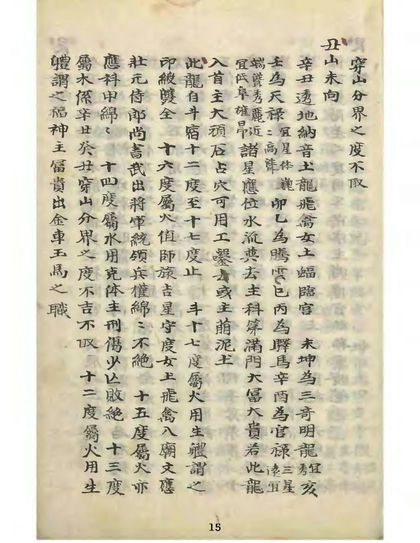 穿山分界之度不取
丑山未向
辛丑透地納音土龍飛禽女土蝠臨官 未坤為三奇明龍宜亥
壬為天祿宜星体巍二高聳 卯乙為騰雲巳丙為驛馬辛酉為官祿三星遠宜
端聳秀麗近宜低阜雄昂諸星應位水流巽去主科第滿門大富大貴若此龍
入首主大頑石占穴可用工鑿去或主萠泥土
此龍自斗宿十二度至十七度止 斗十七度屬火用生體謂之
印綬雙全 十六度屬火值師旅吉星守度女土飛禽入廟文應
壯元侍郎尚書武出將軍統領兵權綿〻不絕 十五度屬火亦
應科甲綿〻 十四度屬水用克体主刑傷少亡敗絕 十三度
屬木係辛丑癸丑穿山分界之度不吉不取 十二度屬火用生
體謂之福神主富貴出金車玉馬之職
15